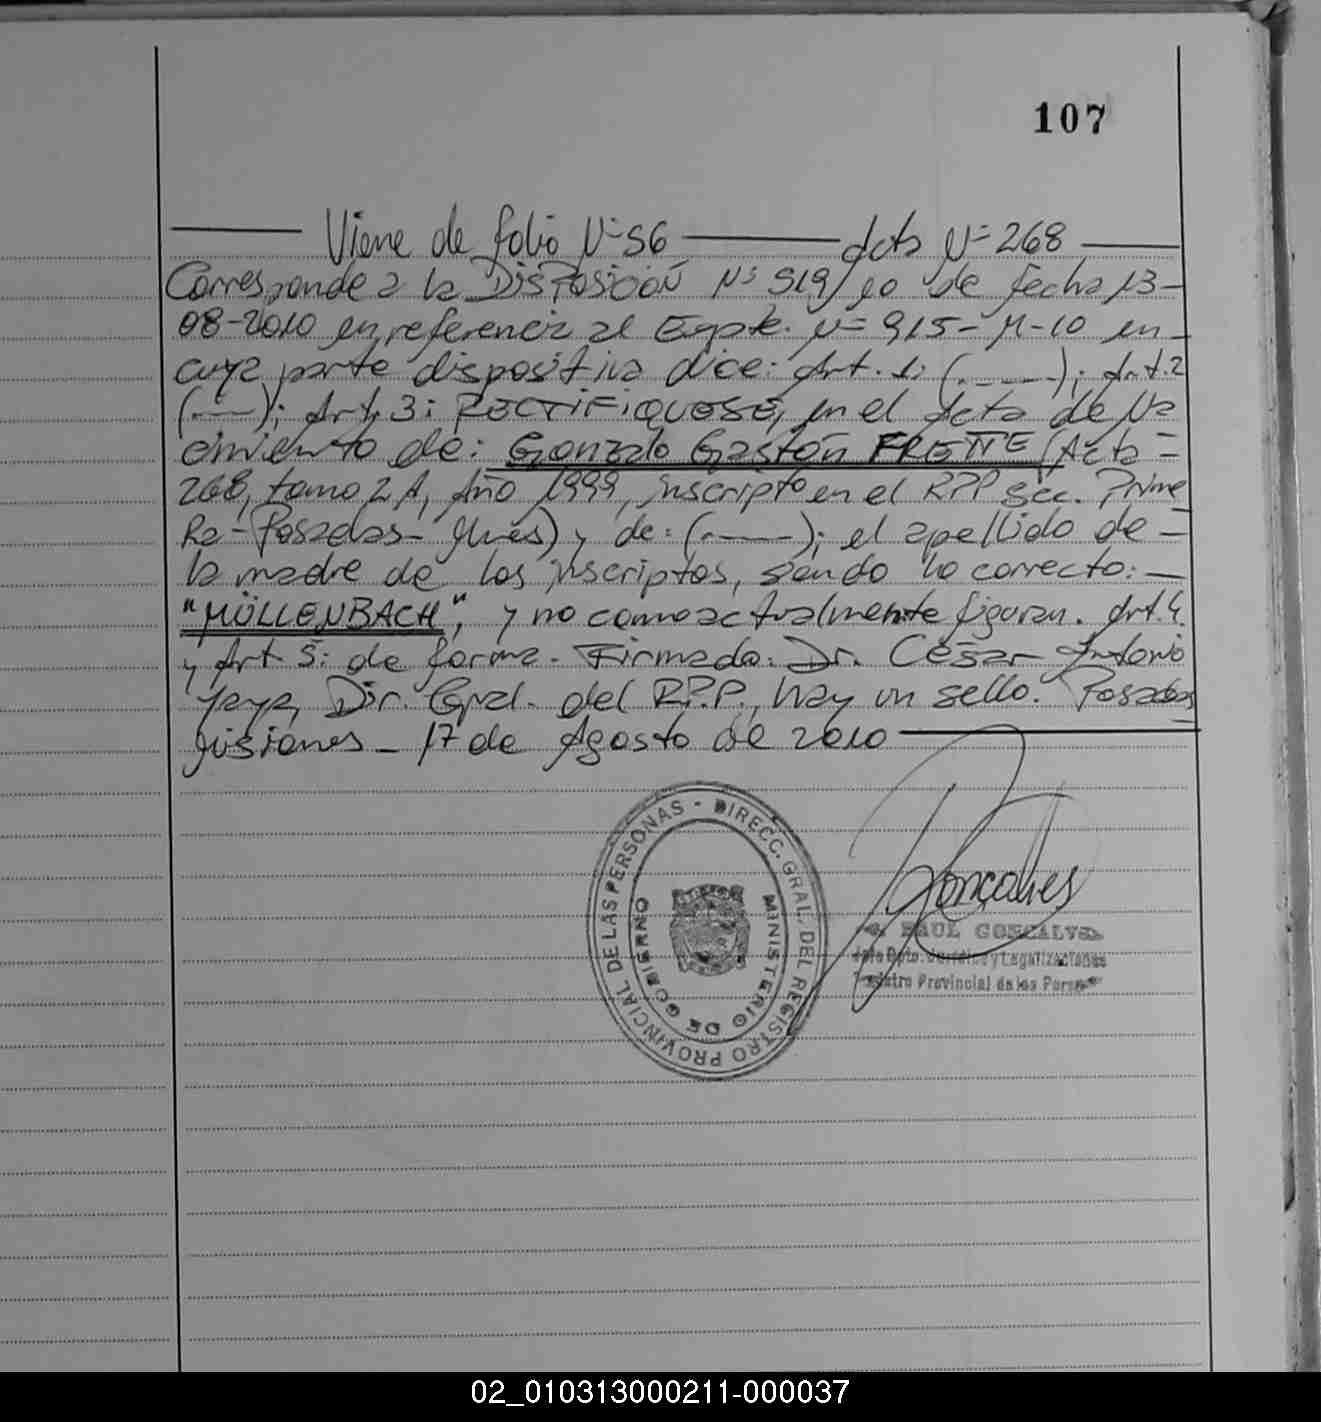 107
Viene de folio Nº 56 Acta Nº 268
Corresponde a la DisPosición Nº 919/10 de fecha 13-
08-2010 en referencia al Expte. Nº 915-M-10 en
cuya parte dispositiva dice: Art. 1: (.----); Art. 2
(.---); Art. 3: RECTIFIQUESE, en el Acta de Na
cimiento de: Gonzalo Gastón FRETTE (Acta -
268, tomo 2 A, Año 1999, inscripto en el RPP Sec. Prime
Ra - Posadas - Mnes) y de: (.----); el apellido de -
la madre de los inscriptos, siendo lo correcto: -
"MÜLLENBACH", y no como actualmente figuran. Art. 4
y Art 5: de forma. Firmado: Dr. César Antonio
Yaya, Dir. Gral. del R.P.P., hay un sello. Posadas
Misiones - 17 de Agosto de 2010
DIRECC. GRAL. DEL REGISTRO PROVINCIAL DE LAS PERSONAS -
MINISTERIO DE GOBIERNO
Gonçalves
RAUL GONCALVES
Jefe Dpto. Jurídico y Legalizaciones
Registro Provincial de las Personas
02_010313000211-000037